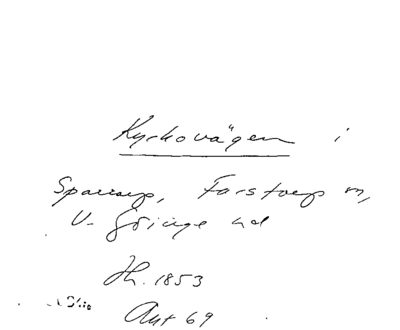 Kyrkovägen i
Sparrarp, Farstorp m,
V. Göinge hd
Jh. 1853
Ant 69